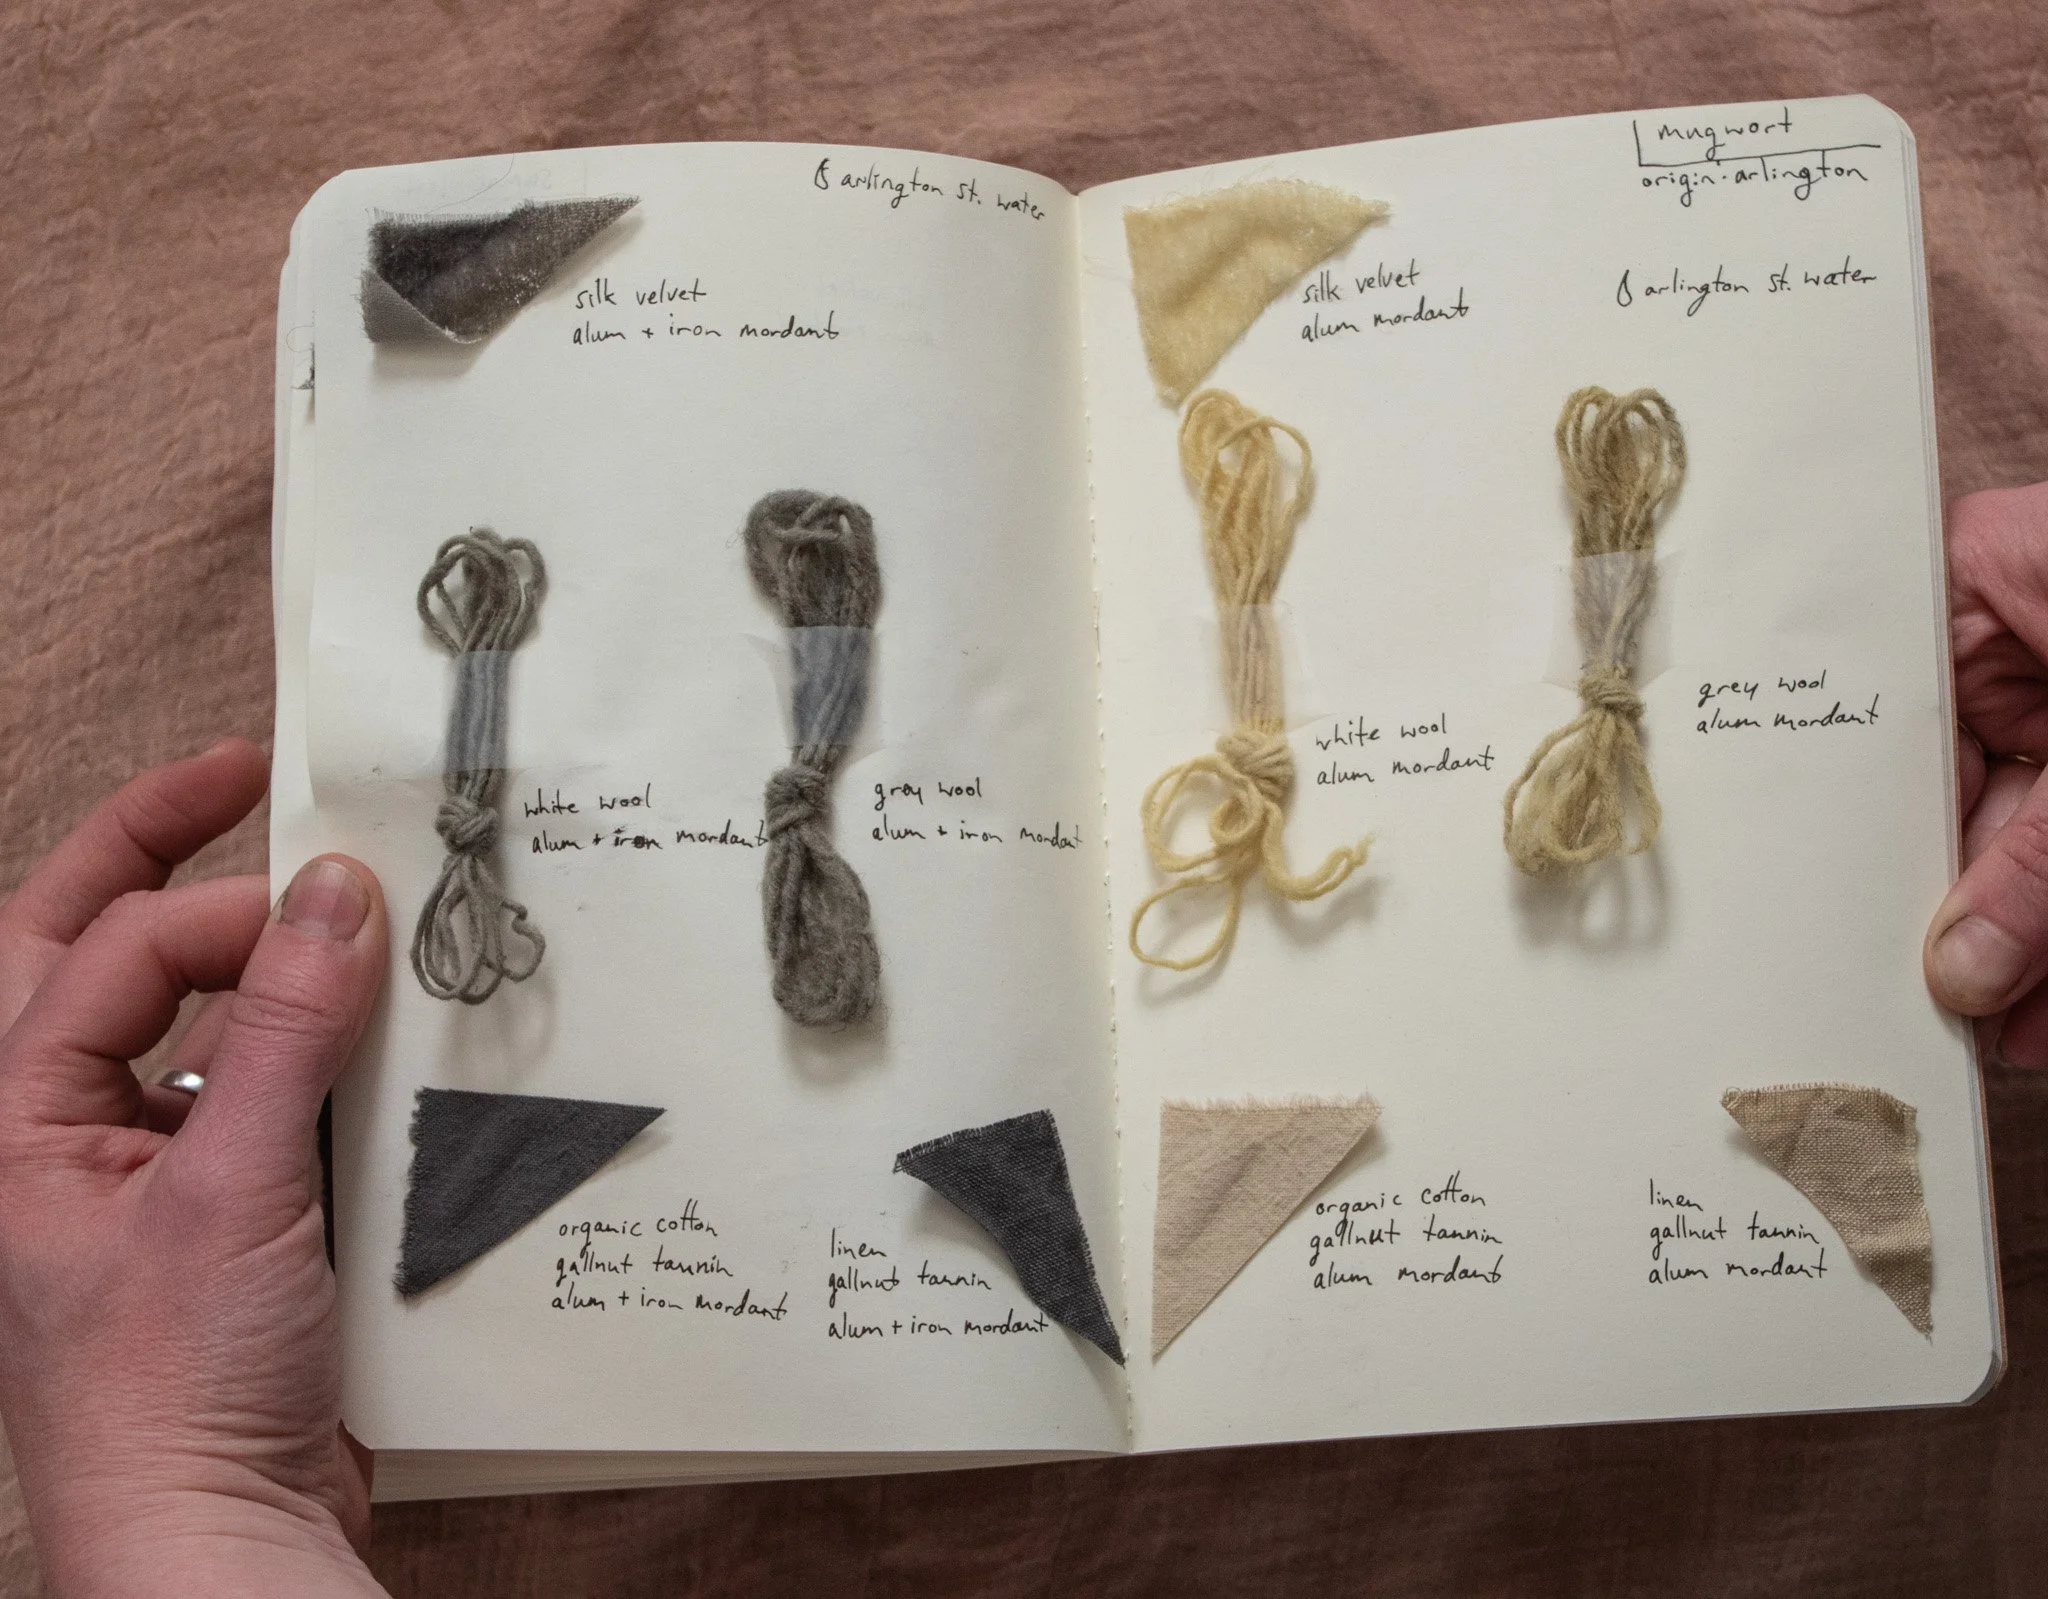 arlington st. water
silk velvet
alum + iron mordant
white wool
alum + iron mordant
grey wool
alum + iron mordant
organic cotton
gallnut tannin
alum + iron mordant
linen
gallnut tannin
alum + iron mordant
mugwort
origin: arlington
arlington st. water
silk velvet
alum mordant
white wool
alum mordant
grey wool
alum mordant
organic cotton
gallnut tannin
alum mordant
linen
gallnut tannin
alum mordant